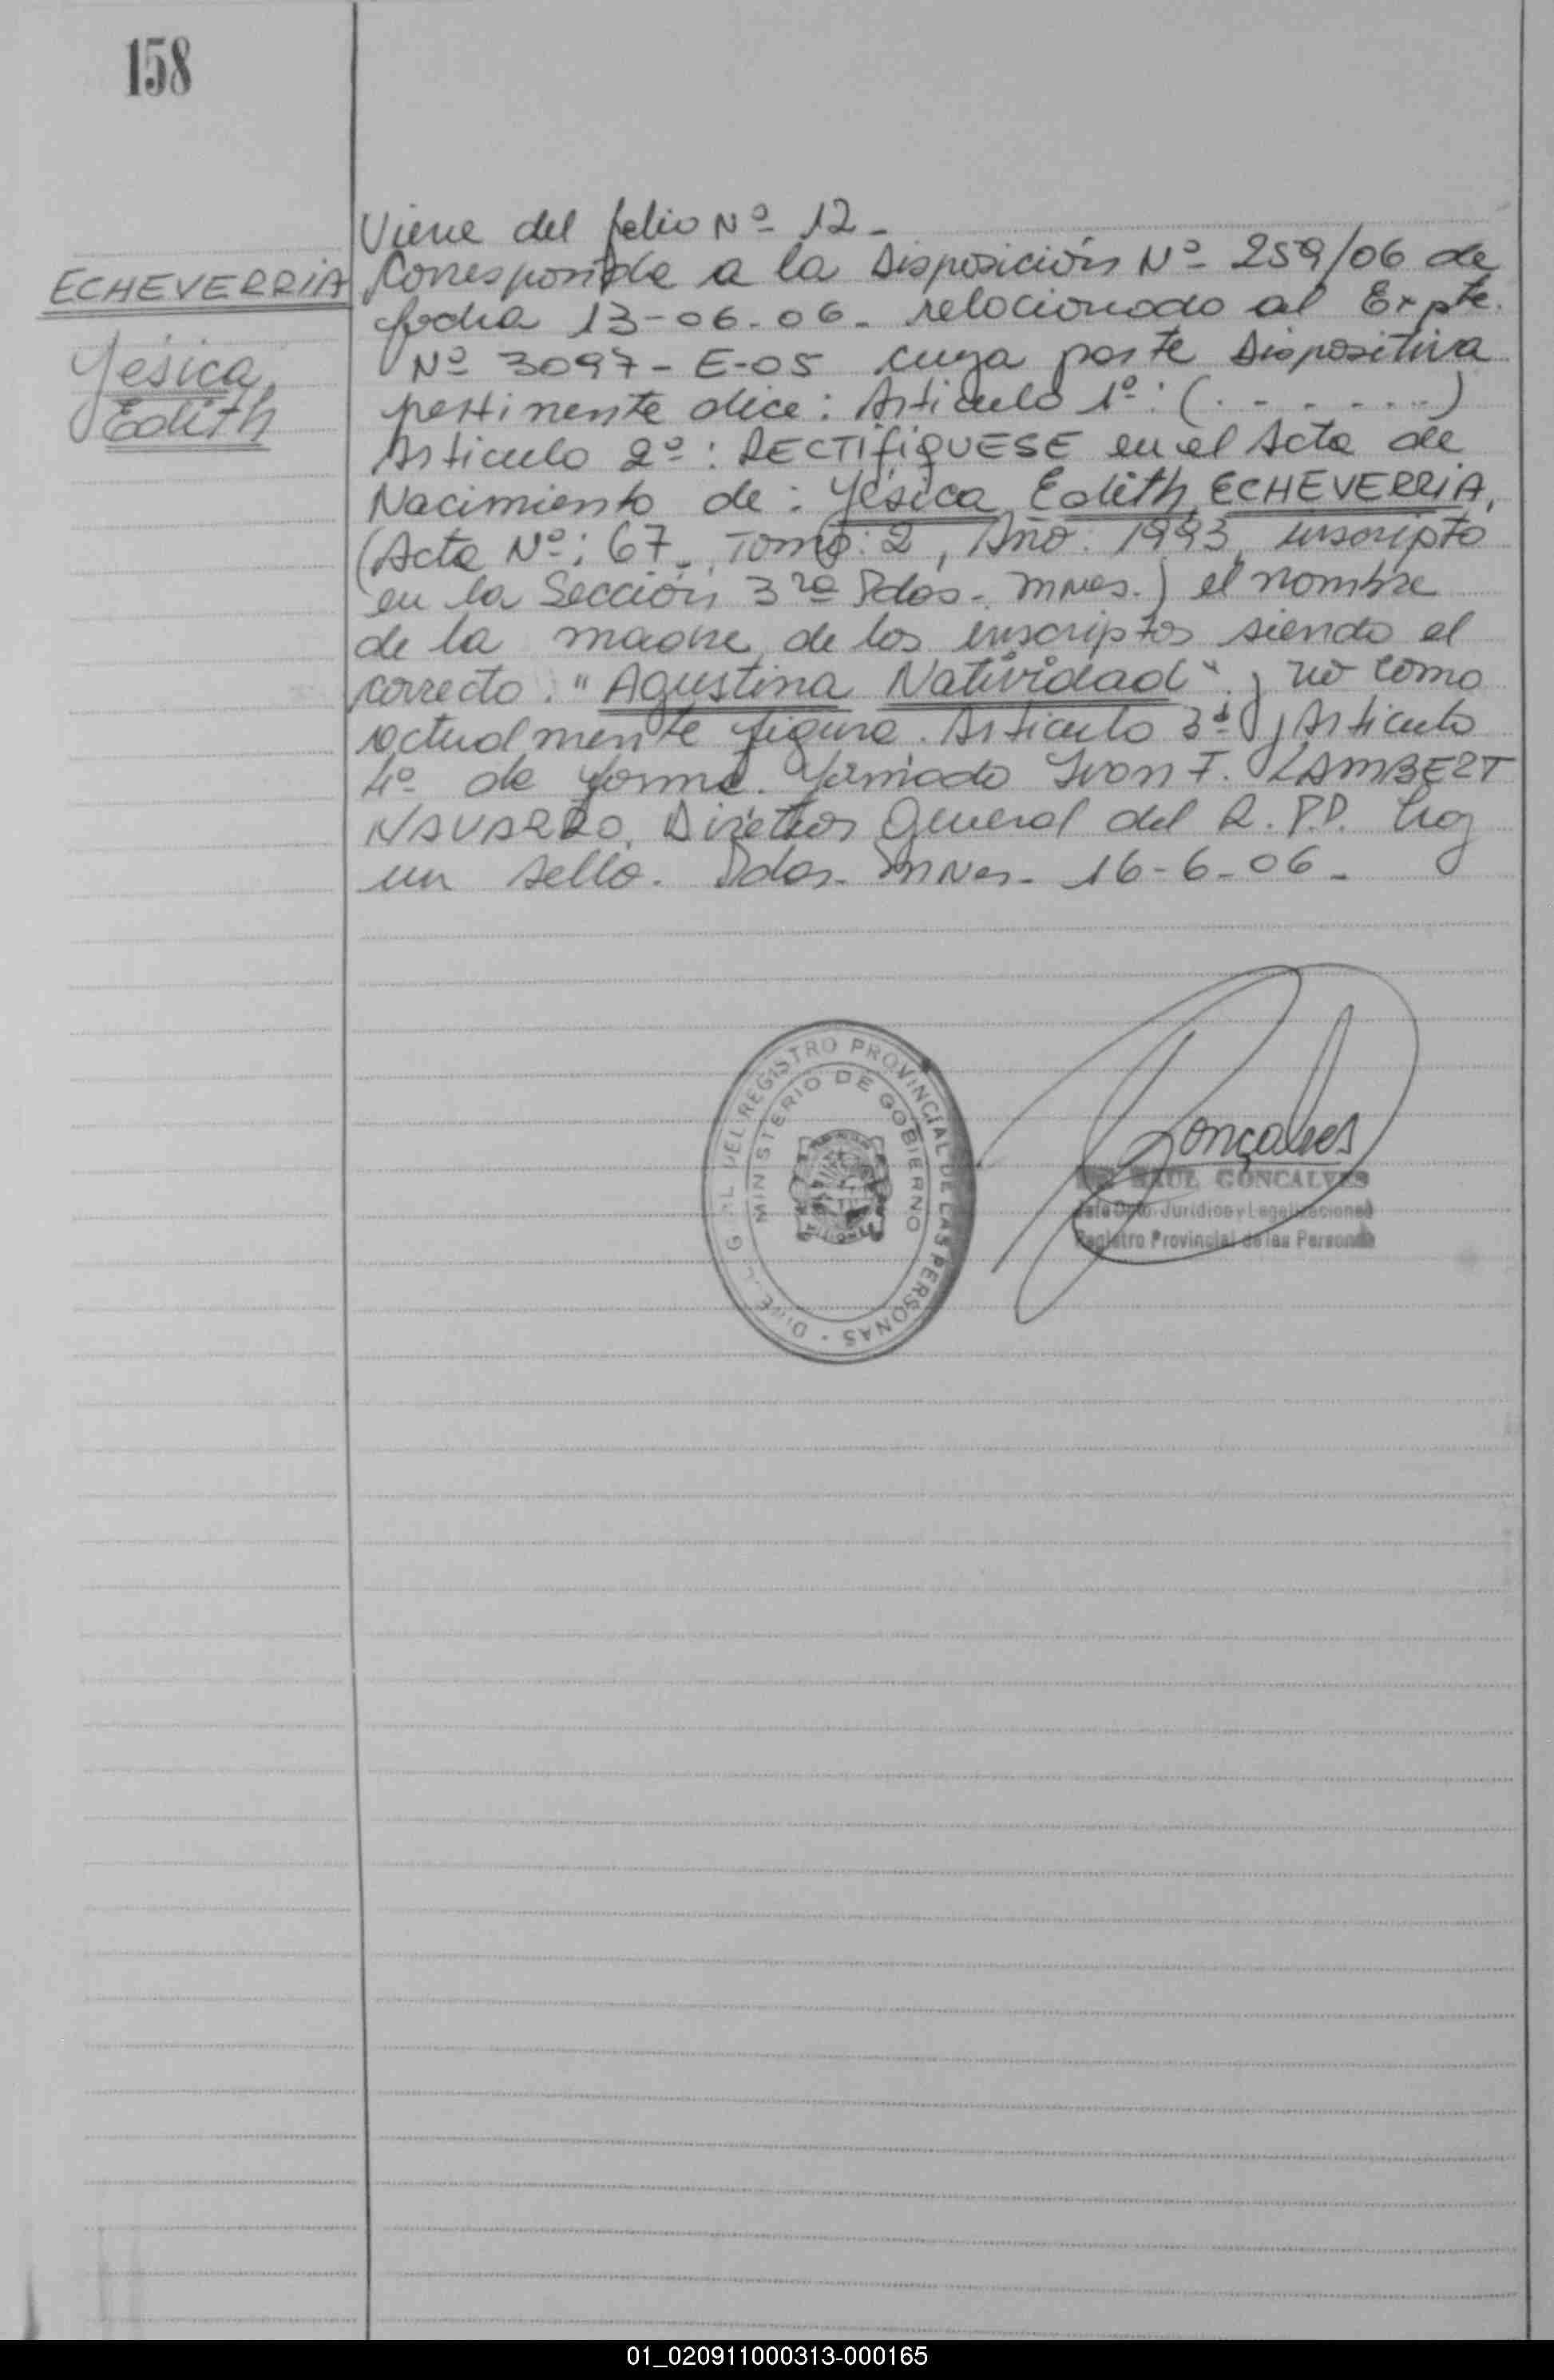 158
Viene del folio Nº 12-
ECHEVERRIA
Yésica
Edith
Corresponde a la Disposición Nº 259/06 de
fecha 13-06-06- relacionado al Expte.
Nº 3097-E-05 cuya parte Dispositiva
pertinente dice: Articulo 1º: (.......)
Articulo 2º: RECTIFIQUESE en el Acta de
Nacimiento de: Yésica Edith ECHEVERRIA,
(Acta Nº: 67, Tomo: 2, Año: 1993, inscripto
en la Sección 3ra Pdas. Mnes.) el nombre
de la madre de los inscriptos siendo el
correcto: "Agustina Natividad" y no como
actualmente figura. Articulo 3º y Articulo
4º de forma. firmado Ivon F. LAMBERT
NAVARRO, Director General del R.P.P. Hay
un sello. Pdas. Mnes. 16-6-06-
DEL REGISTRO PROVINCIAL DE LAS PERSONAS -
MINISTERIO DE GOBIERNO
MISIONES
Gonçalves
RAUL GONCALVES
Jefe Dpto. Juridico y Legalizaciones
Registro Provincial de las Personas
01_020911000313-000165